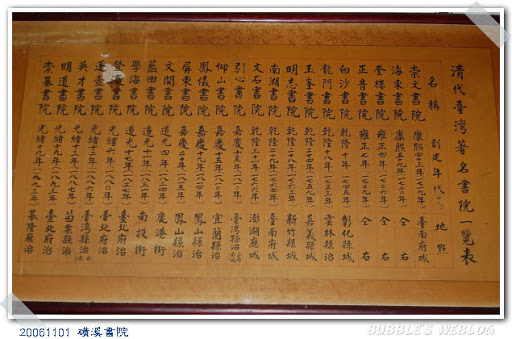 清代臺灣著名書院一覽表
名稱 創建年代 地點
崇文書院 康熙四三年(一七〇四) 臺南府城
海東書院 康熙五九年(一七二〇) 仝右
奎樓書院 雍正四年(一七二六) 仝右
正音書院 雍正七年(一七二九) 仝右
白沙書院 乾隆十年(一七四五) 彰化縣城
龍門書院 乾隆十八年(一七五三) 雲林縣治
玉峯書院 乾隆二四年(一七五九) 嘉義縣城
明志書院 乾隆二八年(一七六三) 新竹縣城
南湖書院 乾隆 臺南府城
文石書院 乾隆 澎湖廳城
引心書院 嘉慶十五年(一八一〇) 臺灣縣治
仰山書院 嘉慶十五年(一八一〇) 宜蘭縣治
鳳儀書院 嘉慶十九年(一八一四) 鳳山縣治
屏東書院 嘉慶二十年(一八一五) 鳳山縣治
文開書院 道光四年(一八二四) 鹿港街
藍田書院 道光十一年(一八三一) 南投街
學海書院 道光十七年(一八三七) 臺北府治
書院 光緒六年(一八八〇) 臺北府治
蓬壺書院 光緒十二年(一八八六) 臺灣縣治
英才書院 光緒 苗栗縣治
明道書院 光緒十九年(一八九三) 臺北府治
崇基書院 光緒十九年(一八九三) 基隆廳治
20061101 磺溪書院
BUBBLE'S WEBLOG